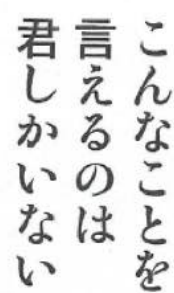 こんなことを
言えるのは
君しかいない